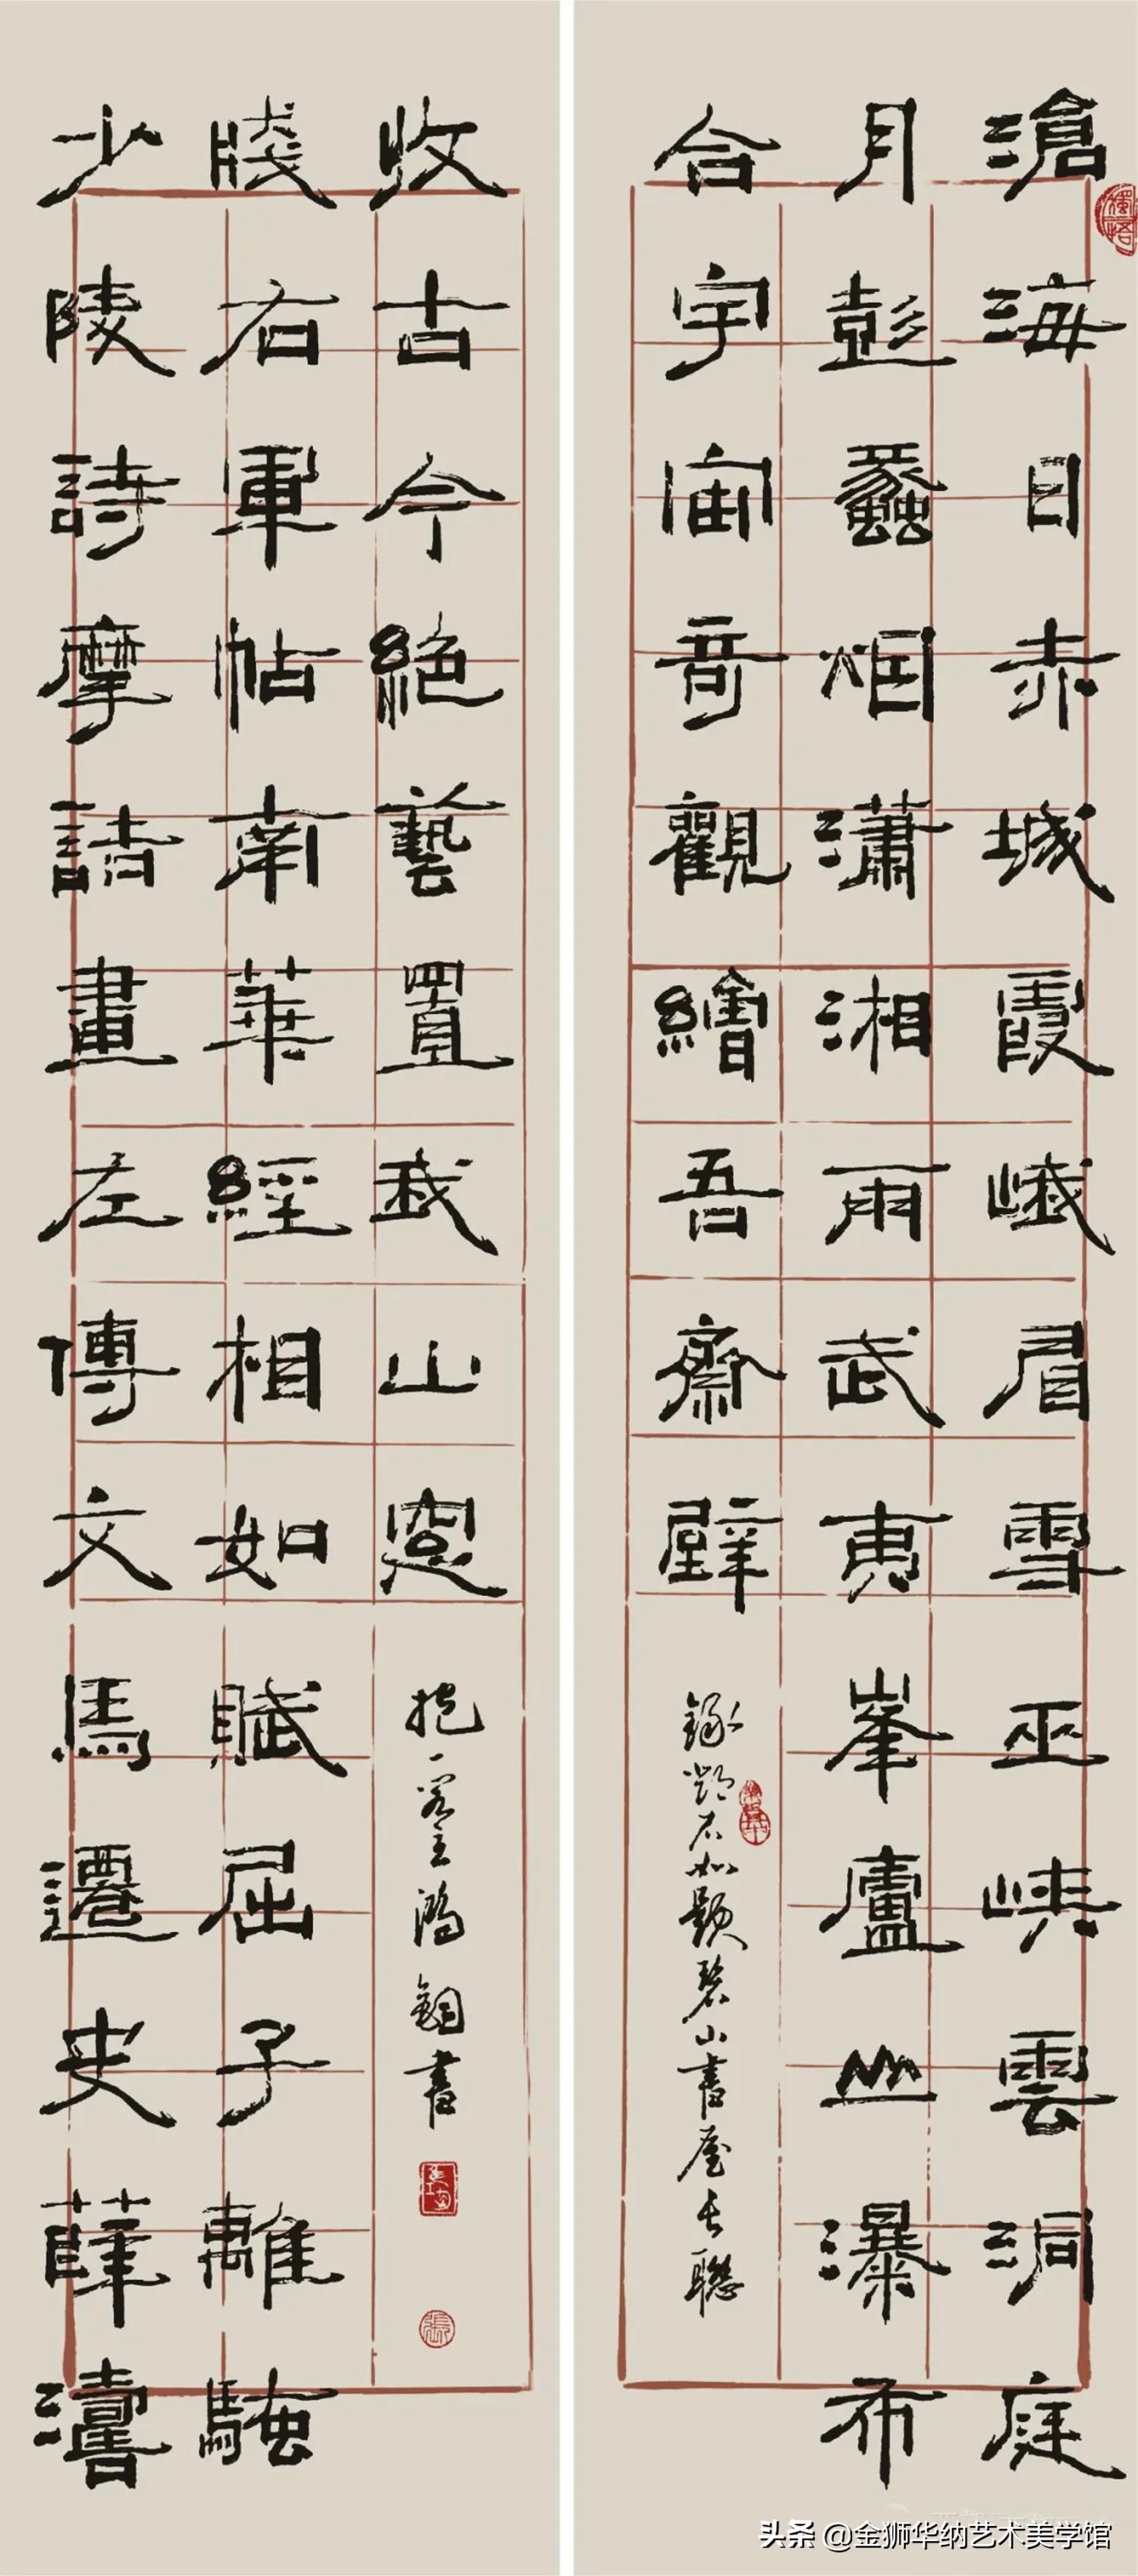 滄海日赤城霞峨眉雪巫峽雲洞庭
月彭蠡烟瀟湘雨武夷峯廬山瀑布
合宇宙奇觀繪吾齋壁
錄鄧石如題碧山書屋長聯
少陵詩摩詰畫左傳文馬遷史薛濤
牋右軍帖南華經相如賦屈子離騷
收古今絕藝置我山窻
抱一 主 書
头条 @金狮华纳艺术美学馆